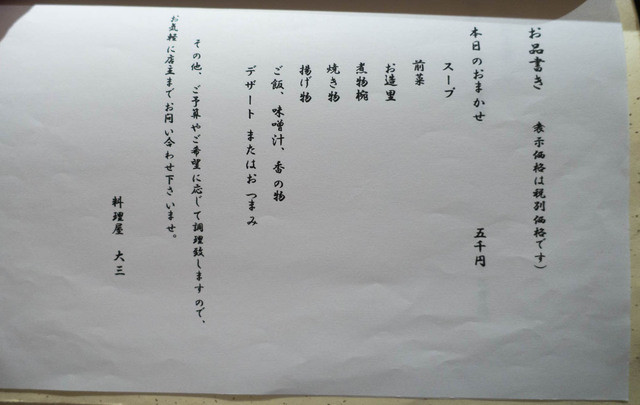 お品書き　表示価格は税別価格です）
本日のおまかせ　五千円
スープ
前菜
お造里
煮物椀
焼き物
揚げ物
ご飯、味噌汁、香の物
デザート またはおつまみ
その他、ご予算やご希望に応じて調理致しますので、
お気軽に店主までお問い合わせ下さいませ。
料理屋　大三